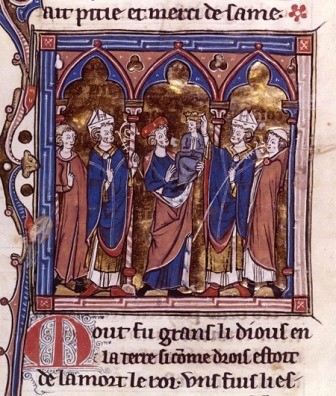 ait pitie et merci de same.
Mout fu grans li dious en
la terre si cōme drois estoit
de la mort le roi. Uns fiusli es